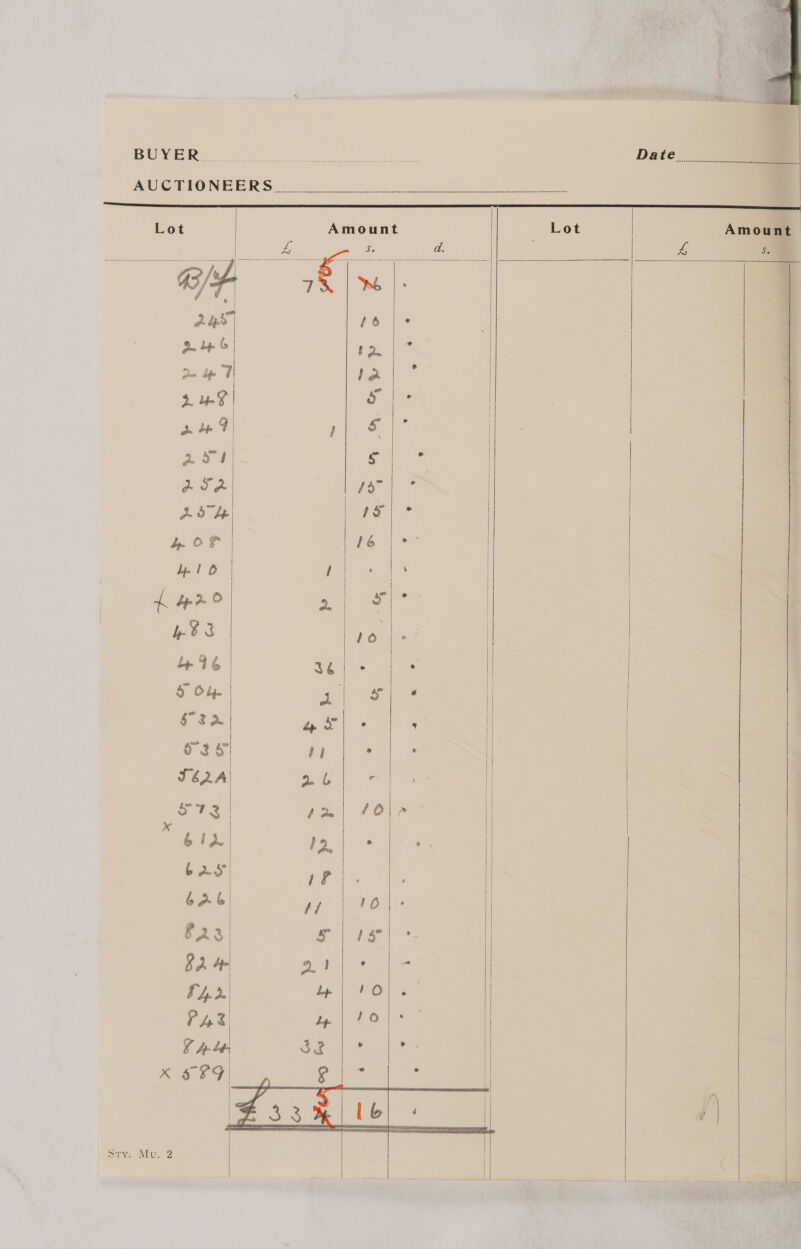 BUYER Date
AUCTIONEERS
Lot Amount Lot Amount
£ s. d. £ s.
B/f 75 16 .
245 16 .
246 12 .
247 12 .
248 5 .
249 1 5 .
251 5 .
252 15 .
254 15 .
408 16 .
410 1 . .
420 2 5 .
483 10 .
496 36 . .
504 2 5 .
522 45 . .
535 11 . .
562A 26 . .
573 12 10 .
x
612 12 . .
625 18 . .
626 11 10 .
823 5 15 .
824 21 . .
842 4 10 .
843 4 10 .
844 32 . .
x 589 8 . .
£ 335 16 .
Sty. Mu. 2